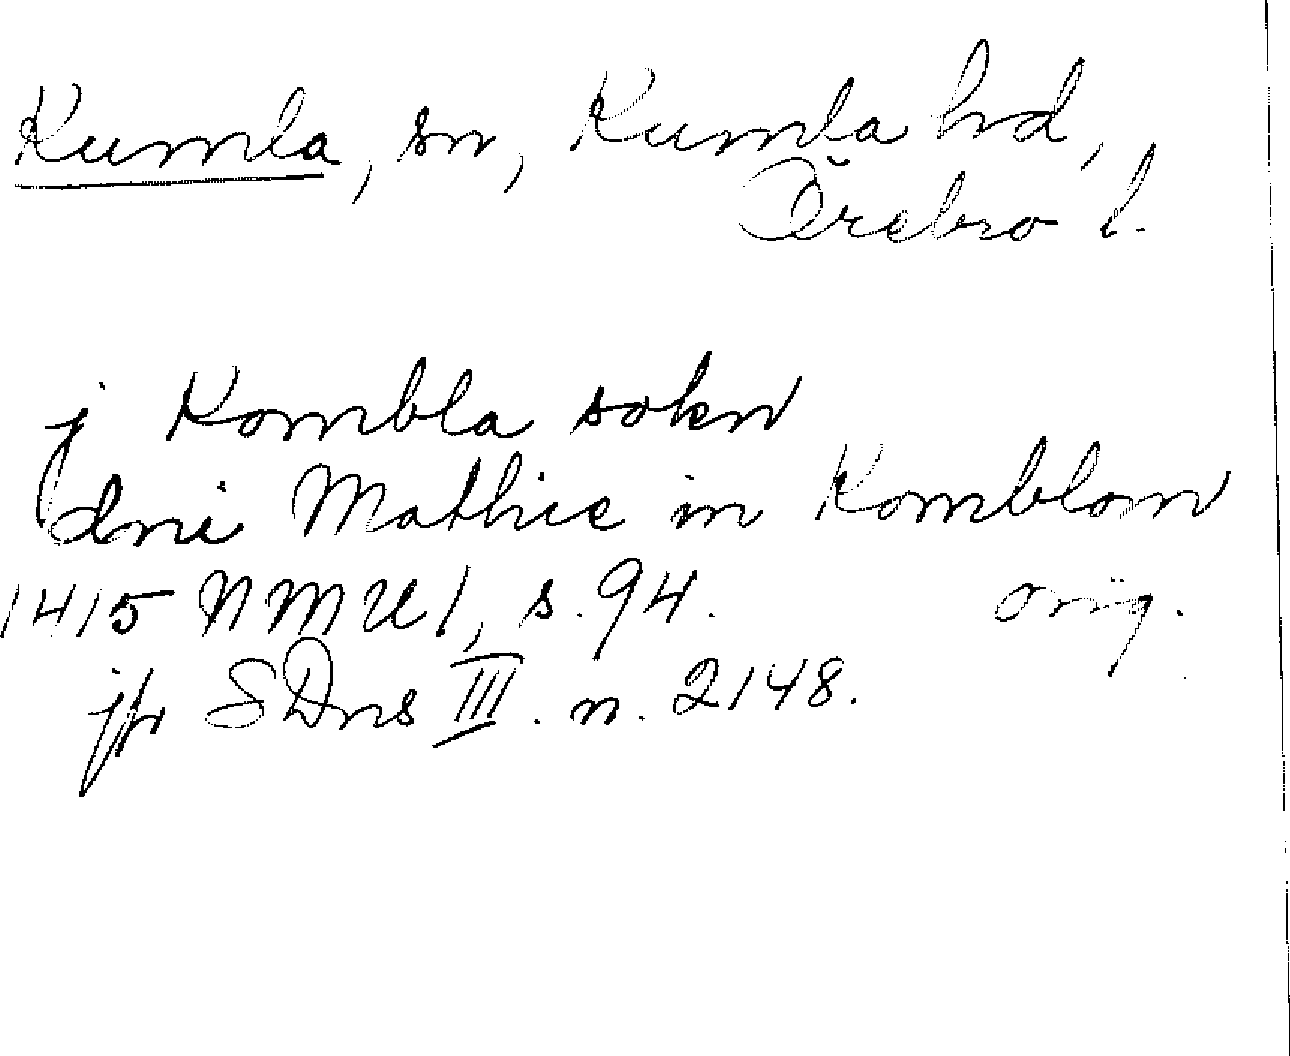 Kumla, sn, Kumla hd,
Örebro l.
j Kombla sokn
dni Mathie in Komblom
1415 NMU1, s. 94. orig.
jfr SDns III. n. 2148.